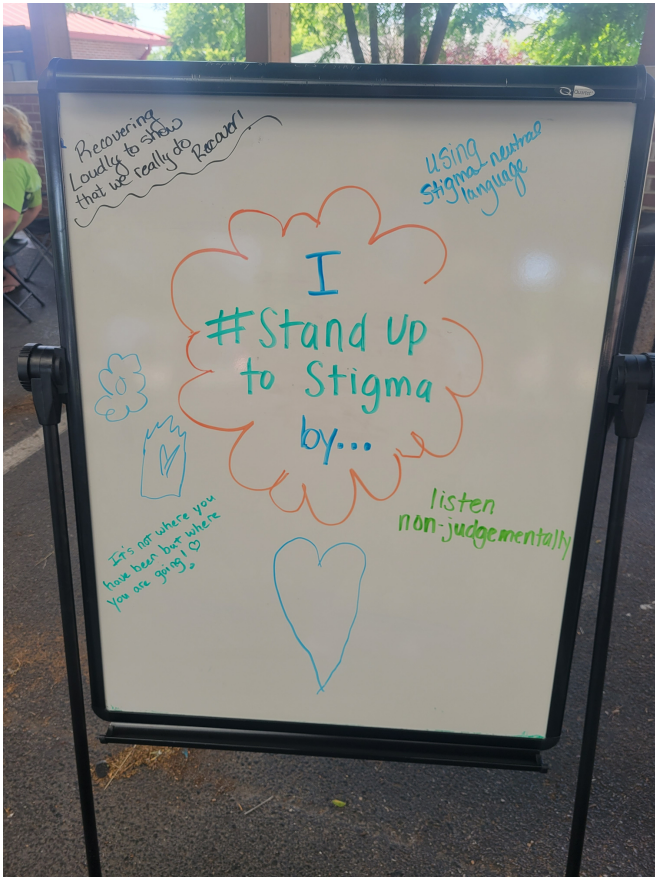 Recovering
Loudly to show
that we really do Recover!
using
stigma neutral
language
I
#Stand Up
to Stigma
by...
listen
non-judgementally
It's not where you
have been but where
you are going!